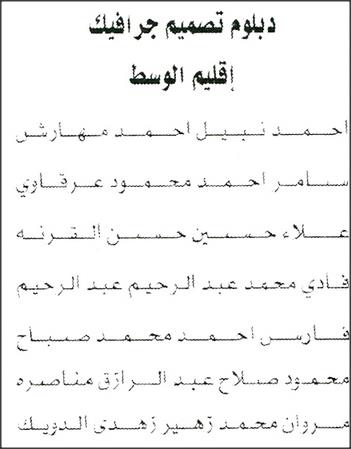 دبلوم تصميم جرافيك
إقليم الوسط
احمد نبيل احمد مهارش
سامر احمد محمود عرقاوي
علاء حسين حسن القرنه
فادي محمد عبد الرحيم عبد الرحيم
فارس احمد محمد صباح
محمود صلاح عبد الرازق مناصره
مروان محمد زهير زهدى الدويك